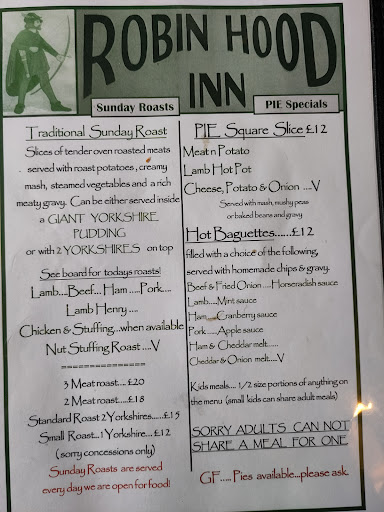 ROBIN HOOD
INN
Sunday Roasts
PIE Specials
Traditional Sunday Roast
Slices of tender oven roasted meats
served with roast potatoes, creamy
mash, steamed vegetables and a rich
meaty gravy. Can be either served inside
a GIANT YORKSHIRE
PUDDING
or with 2 YORKSHIRES on top
See board for todays roasts!
Lamb....Beef... Ham .....Pork....
Lamb Henry ....
Chicken & Stuffing...when available
Nut Stuffing Roast ....V
===============
3 Meat roast.... £20
2 Meat roast.....£18
Standard Roast 2 Yorkshires......£15
Small Roast...1 Yorkshire... £12
( sorry concessions only)
Sunday Roasts are served
every day we are open for food!
PIE Square Slice £12
Meat n Potato
Lamb Hot Pot
Cheese, Potato & Onion ...V
Served with mash, mushy peas
or baked beans and gravy
Hot Baguettes......£12
filled with a choice of the following,
served with homemade chips & gravy.
Beef & Fried Onion .....Horseradish sauce
Lamb.....Mint sauce
Ham....Cranberry sauce
Pork ......Apple sauce
Ham & Cheddar melt......
Cheddar & Onion melt.....V
Kids meals.... 1/2 size portions of anything on
the menu (small kids can share adult meals)
SORRY ADULTS CAN NOT
SHARE A MEAL FOR ONE
GF..... Pies available...please ask.